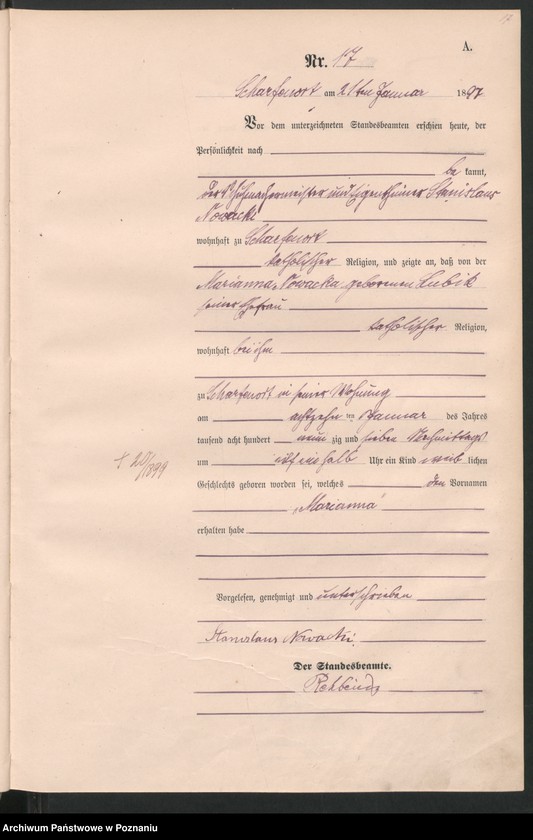 17
A.
Nr. 17
Scharfenort am 21ten Januar 1897
Vor dem unterzeichneten Standesbeamten erschien heute, der
Persönlichkeit nach
be kannt,
der Schuhmachermeister und Eigenthümer Stanislaus
Nowacki
wohnhaft zu Scharfenort
katholischer Religion, und zeigte an, daß von der
Marianna Nowacka geborenen Kubik
seiner Ehefrau
katholischer Religion,
wohnhaft bei ihm
zu Scharfenort in seiner Wohnung
am achtzehn ten Januar des Jahres
tausend acht hundert neun zig und sieben Nachmittags
um Uhr ein Kind weib lichen
Geschlechts geboren worden sei, welches den Vornamen
„Marianna“
erhalten habe
Vorgelesen, genehmigt und unterschrieben
Stanislaus Nowacki.
Der Standesbeamte.
† 20/1899
Archiwum Państwowe w Poznaniu